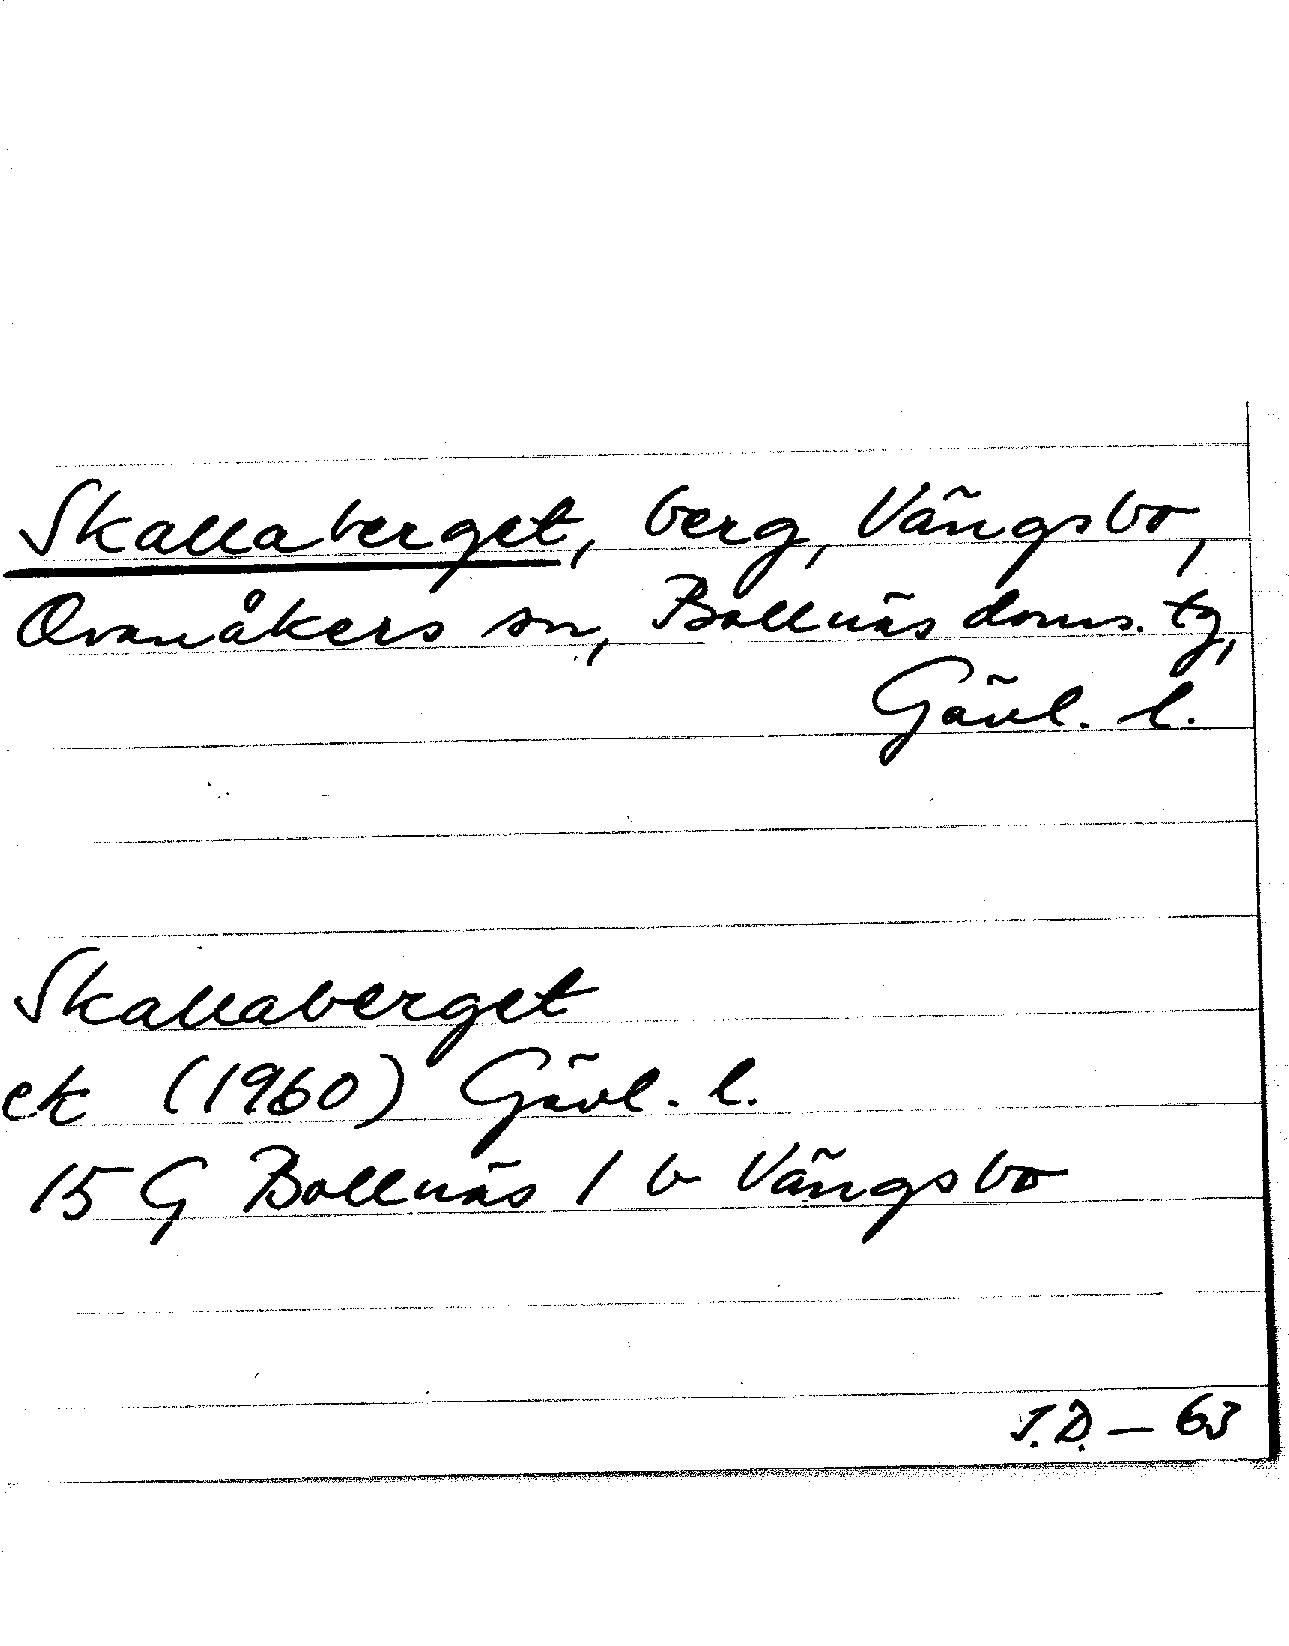 Skallaberget, berg, Vängsbo,
Ovanåkers sn, Bollnäs doms. tg,
Gävl. l.
Skallaberget
ek (1960) Gävl. l.
15 G Bollnäs 1 b Vängsbo
J.D. – 63